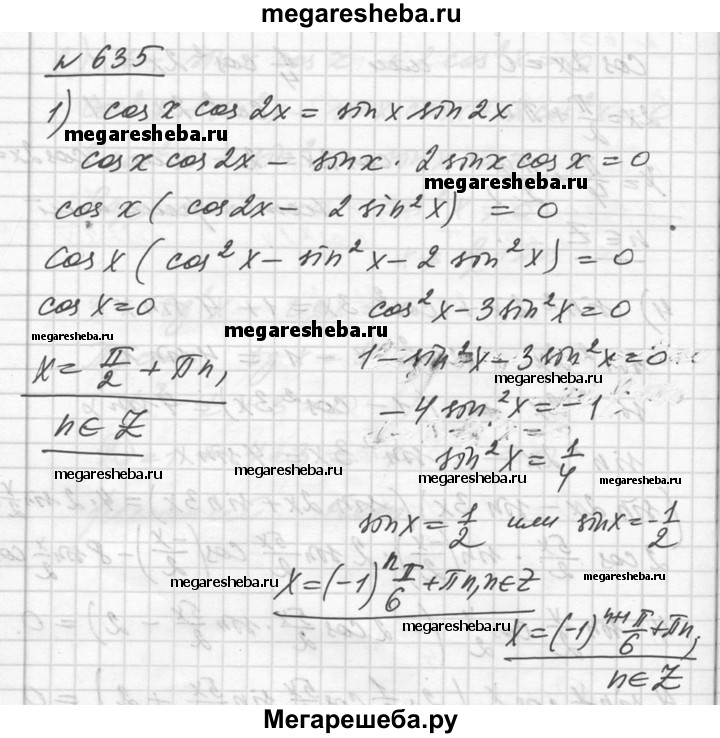 megaresheba.ru
№ 635
1) cos x cos 2x = sin x sin 2x
megaresheba.ru
cos x cos 2x − sin x · 2 sin x cos x = 0
megaresheba.ru
cos x ( cos 2x − 2 sin² x) = 0
cos x ( cos² x − sin² x − 2 sin² x) = 0
cos x = 0 cos² x − 3 sin² x = 0
megaresheba.ru megaresheba.ru
x = π/2 + πn, 1 − sin² x − 3 sin² x = 0
megaresheba.ru
n ∈ Z − 4 sin² x = −1
sin² x = 1/4
megaresheba.ru megaresheba.ru megaresheba.ru
sin x = 1/2 или sin x = −1/2
x = (−1)ⁿ π/6 + πn, n ∈ Z
megaresheba.ru megaresheba.ru
x = (−1)ⁿ⁺¹ π/6 + πn,
n ∈ Z
Мегарешеба.ру